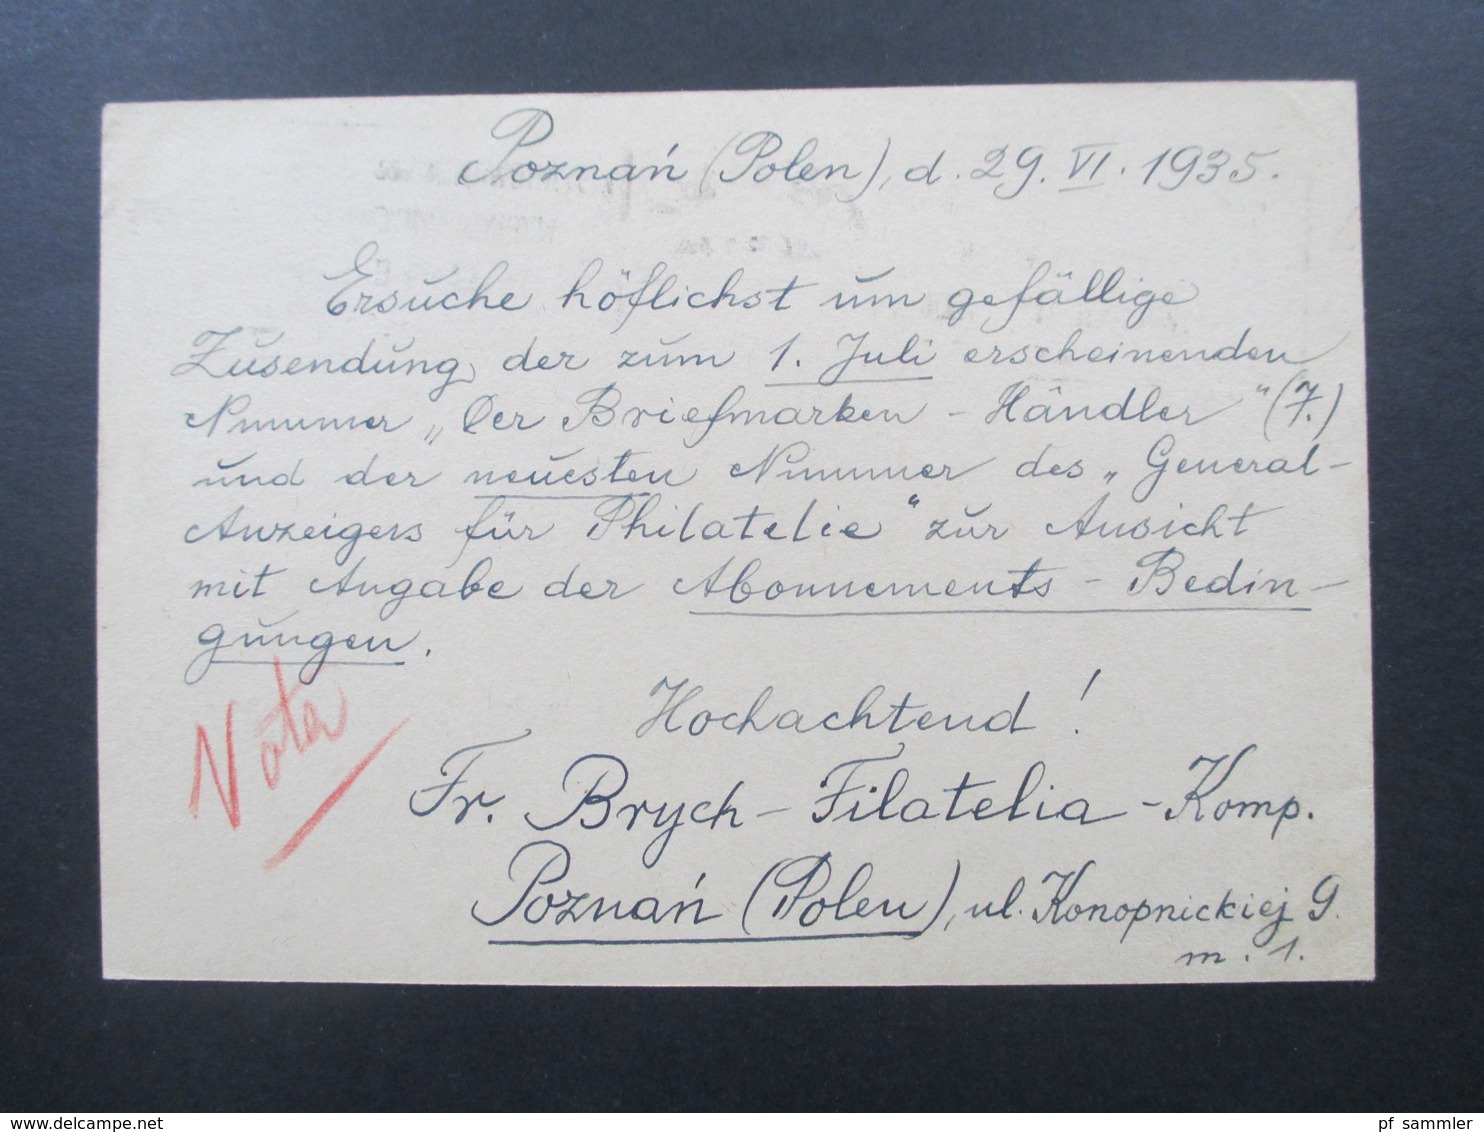 Poznań (Polen), d. 29. VI. 1935.
Ersuche höflichst um gefällige
Zusendung der zum 1. Juli erscheinenden
Nummer „Der Briefmarken - Händler" (7.)
und der neuesten Nummer des „General-
Anzeigers für Philatelie" zur Ansicht
mit Angabe der Abonnements - Bedin-
gungen.
Nota
Hochachtend!
Fr. Brych - Filatelia - Komp.
Poznań (Polen), ul. Konopnickiej 9.
m. 1.
© delcampe.net
pf_sammler